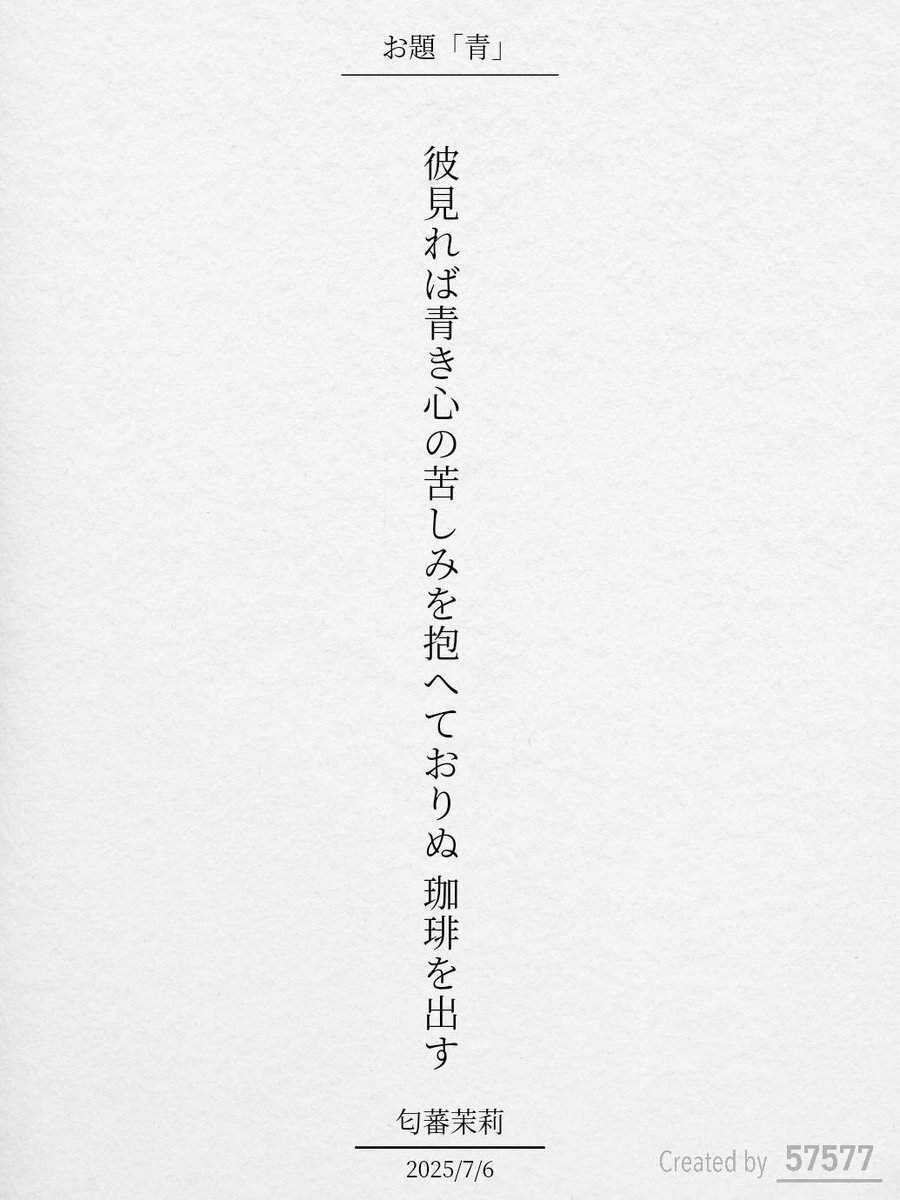 お題「青」
彼見れば青き心の苦しみを抱へておりぬ 珈琲を出す
匂蕃茉莉
2025/7/6
Created by 57577